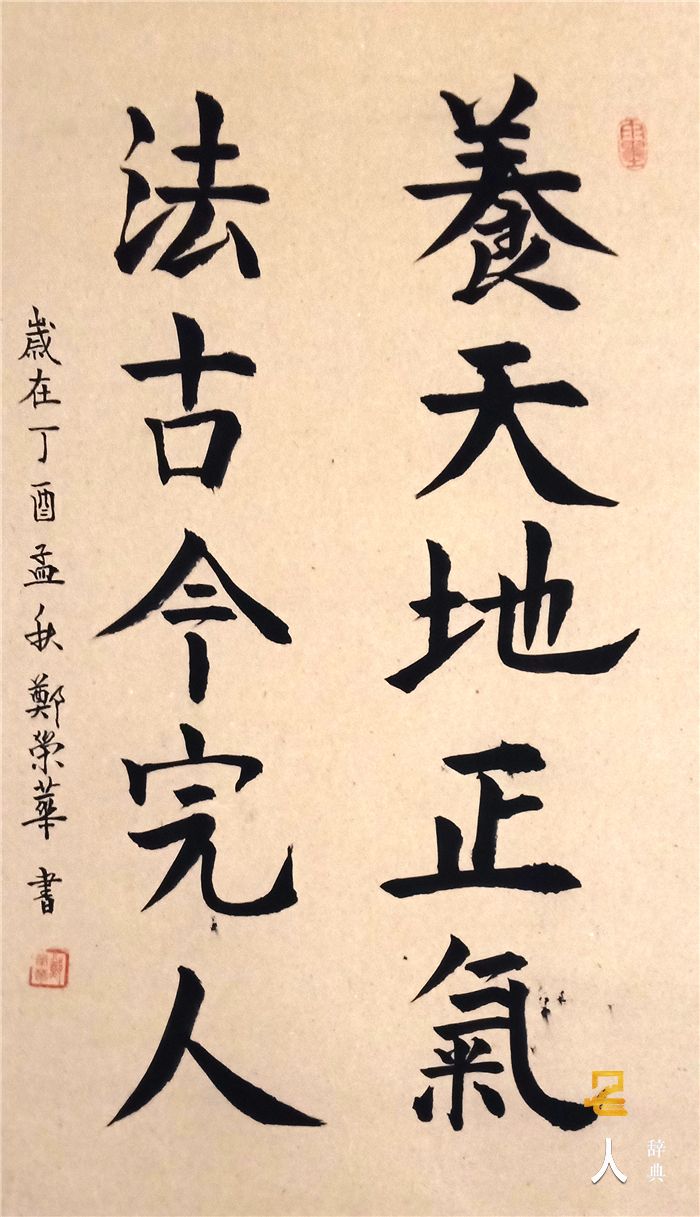 養天地正氣
法古今完人
歲在丁酉孟秋鄭榮華書
人
辞典